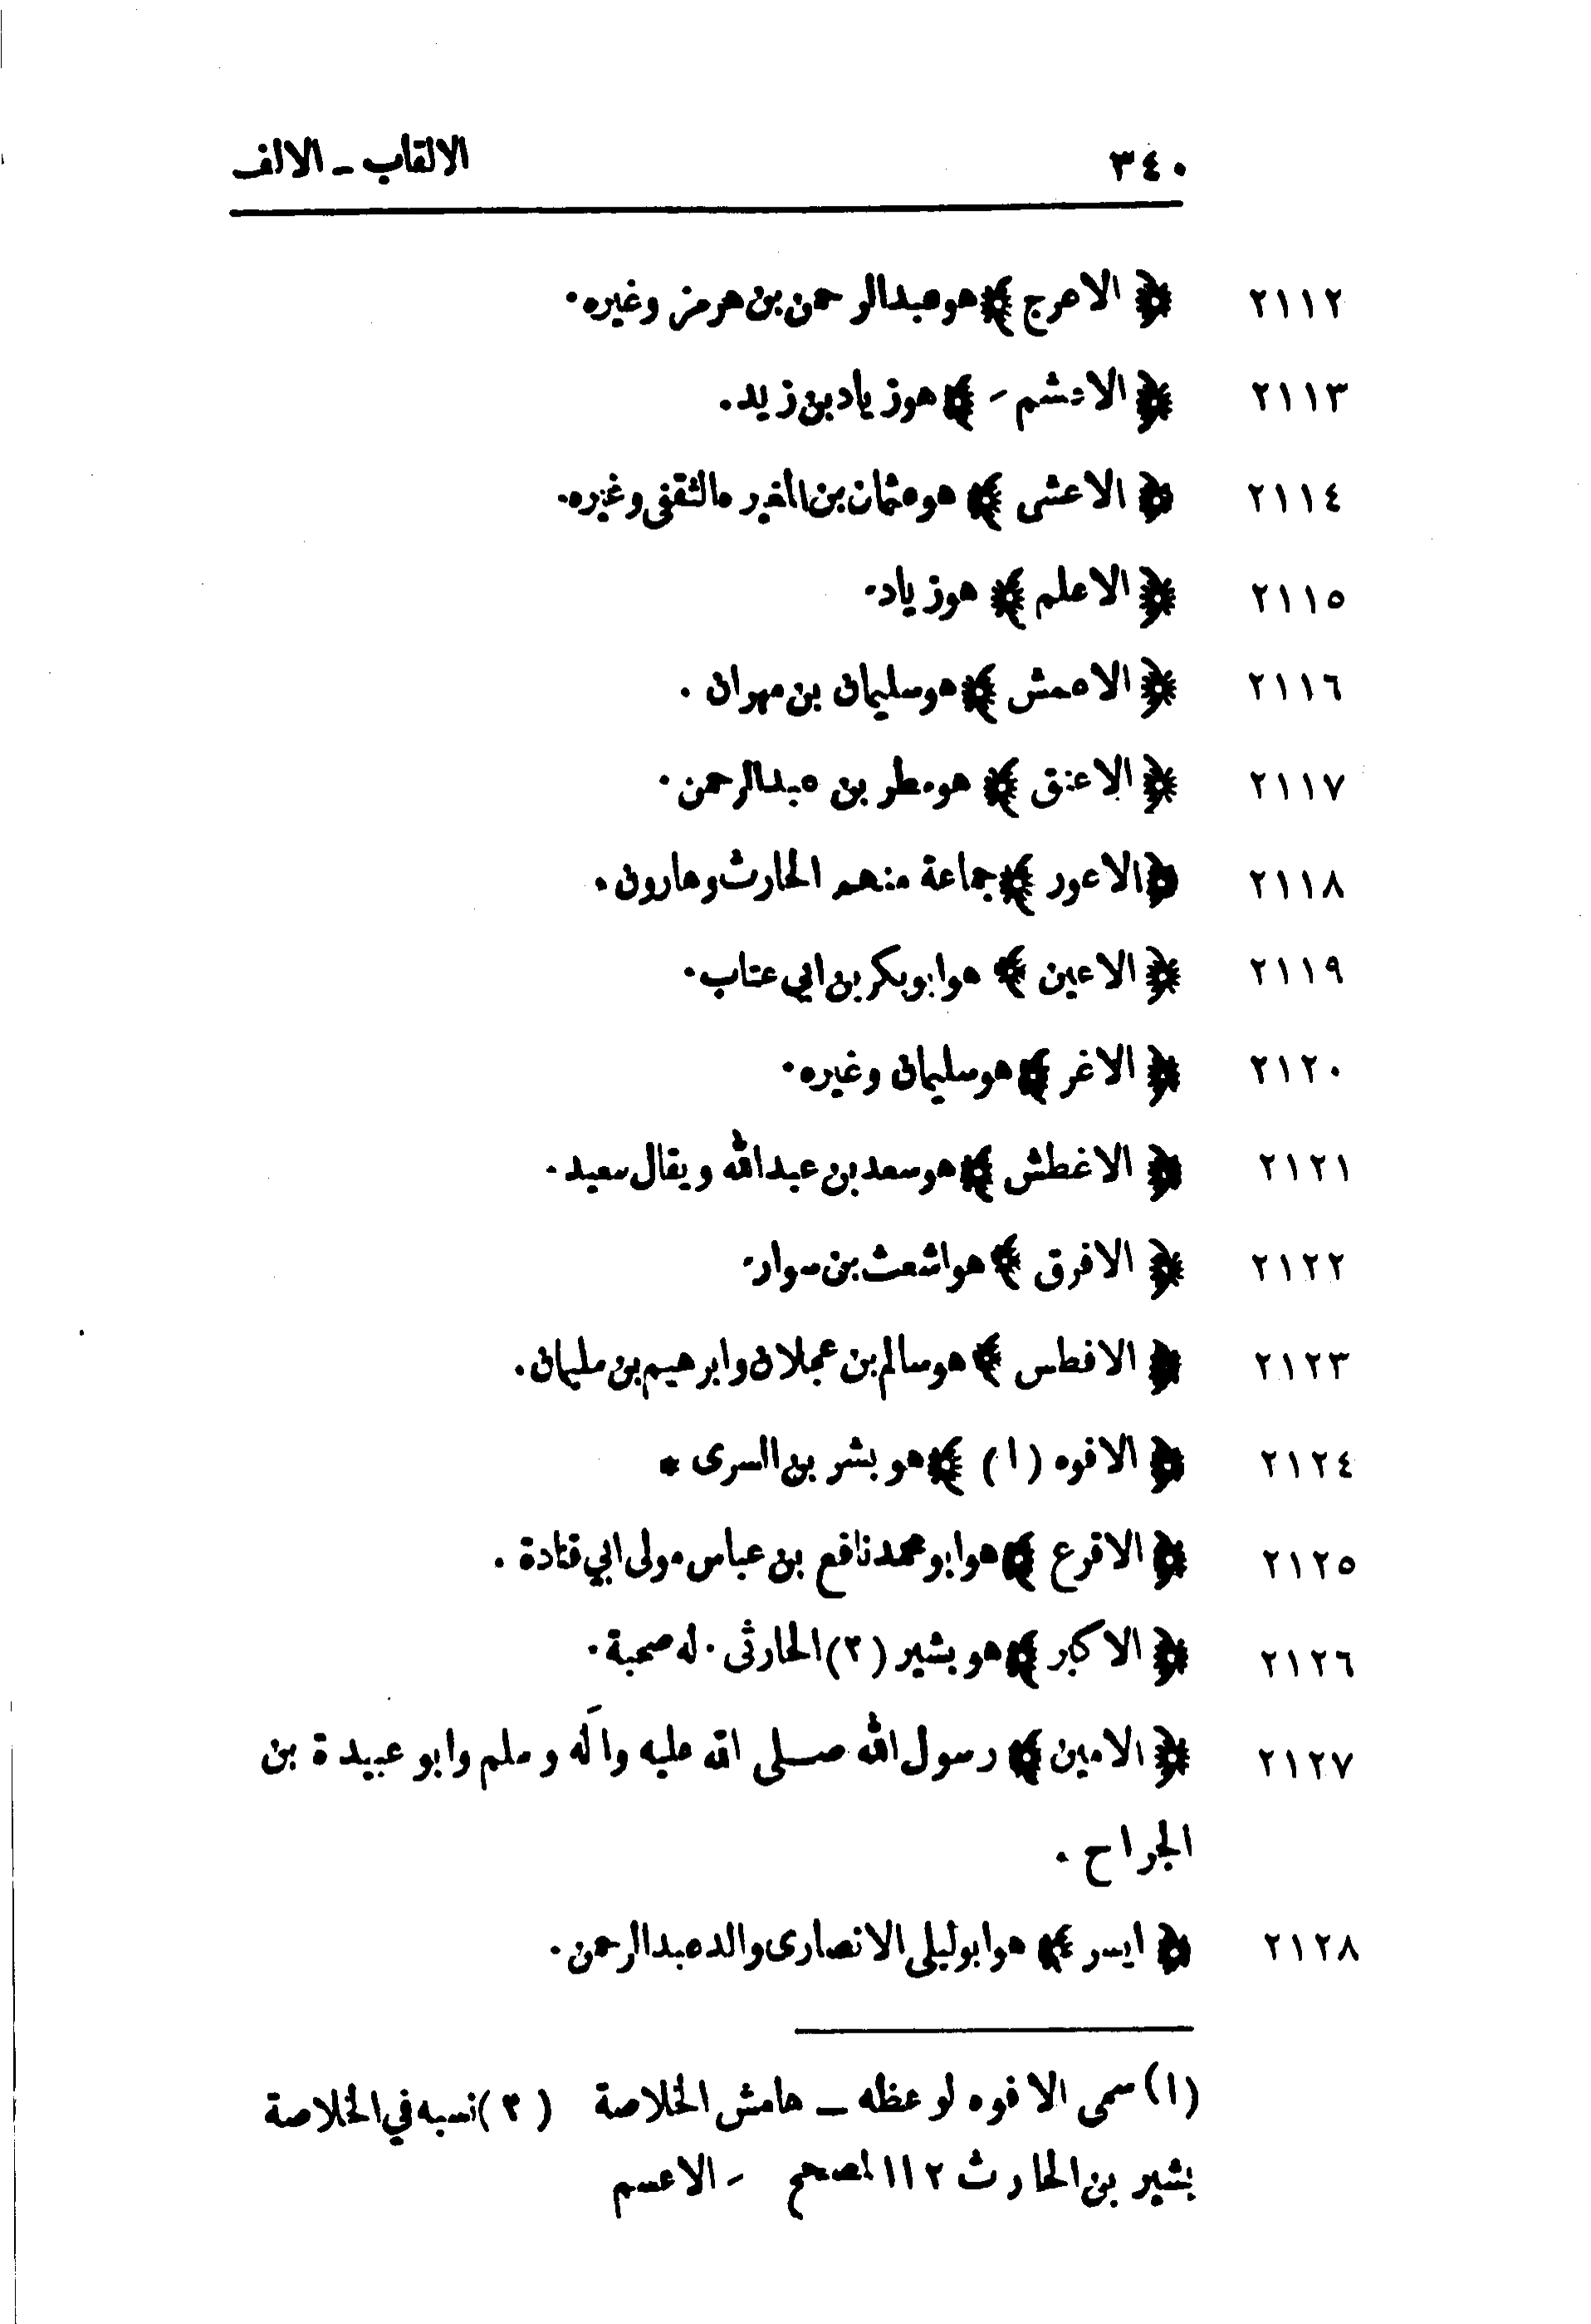 ٣٤٠ الالقاب ـ الالف
٢١١٢ ﴿ الاعرج ﴾ هو عبدالرحمن بن هرمز وغيره ٠
٢١١٣ ﴿ الاعشم - ﴾ هو زياد بن زيد ٠
٢١١٤ ﴿ الاعشى ﴾ هو عثمان بن المغيرة الثقفى وغيره ٠
٢١١٥ ﴿ الاعلم ﴾ هو زياد ٠
٢١١٦ ﴿ الاعمش ﴾ هو سليمان بن مهران ٠
٢١١٧ ﴿ الاعنق ﴾ هو مطر بن عبدالرحمن ٠
٢١١٨ ﴿ الاعور ﴾ جماعة منهم الحارث وهارون ٠
٢١١٩ ﴿ الاعين ﴾ هو ابو بكر بن ابي عتاب ٠
٢١٢٠ ﴿ الاغر ﴾ هو سليمان وغيره ٠
٢١٢١ ﴿ الاغطش ﴾ هو سعد بن عبدالله ويقال سعيد ٠
٢١٢٢ ﴿ الافرق ﴾ هو اشعث بن سوار ٠
٢١٢٣ ﴿ الافطس ﴾ هو سالم بن عجلان وابرهيم بن سليمان ٠
٢١٢٤ ﴿ الافوه (١) ﴾ هو بشر بن السرى *
٢١٢٥ ﴿ الاقرع ﴾ هو ابو محمد نافع بن عباس مولى ابي قتادة ٠
٢١٢٦ ﴿ الاكبر ﴾ هو بشير (٢) الحارثى ٠ له صحبة ٠
٢١٢٧ ﴿ الامين ﴾ رسول الله صلى الله عليه وآله وسلم وابو عبيدة بن
الجراح ٠
٢١٢٨ ﴿ ايسر ﴾ هو ابو ليلى الانصارى والد عبدالرحمن ٠
(١) سمى الافوه لوعظه ـ هامش الخلاصة (٢) نسبه في الخلاصة
بشير بن الحارث ١٢ المصحح - الاعسم